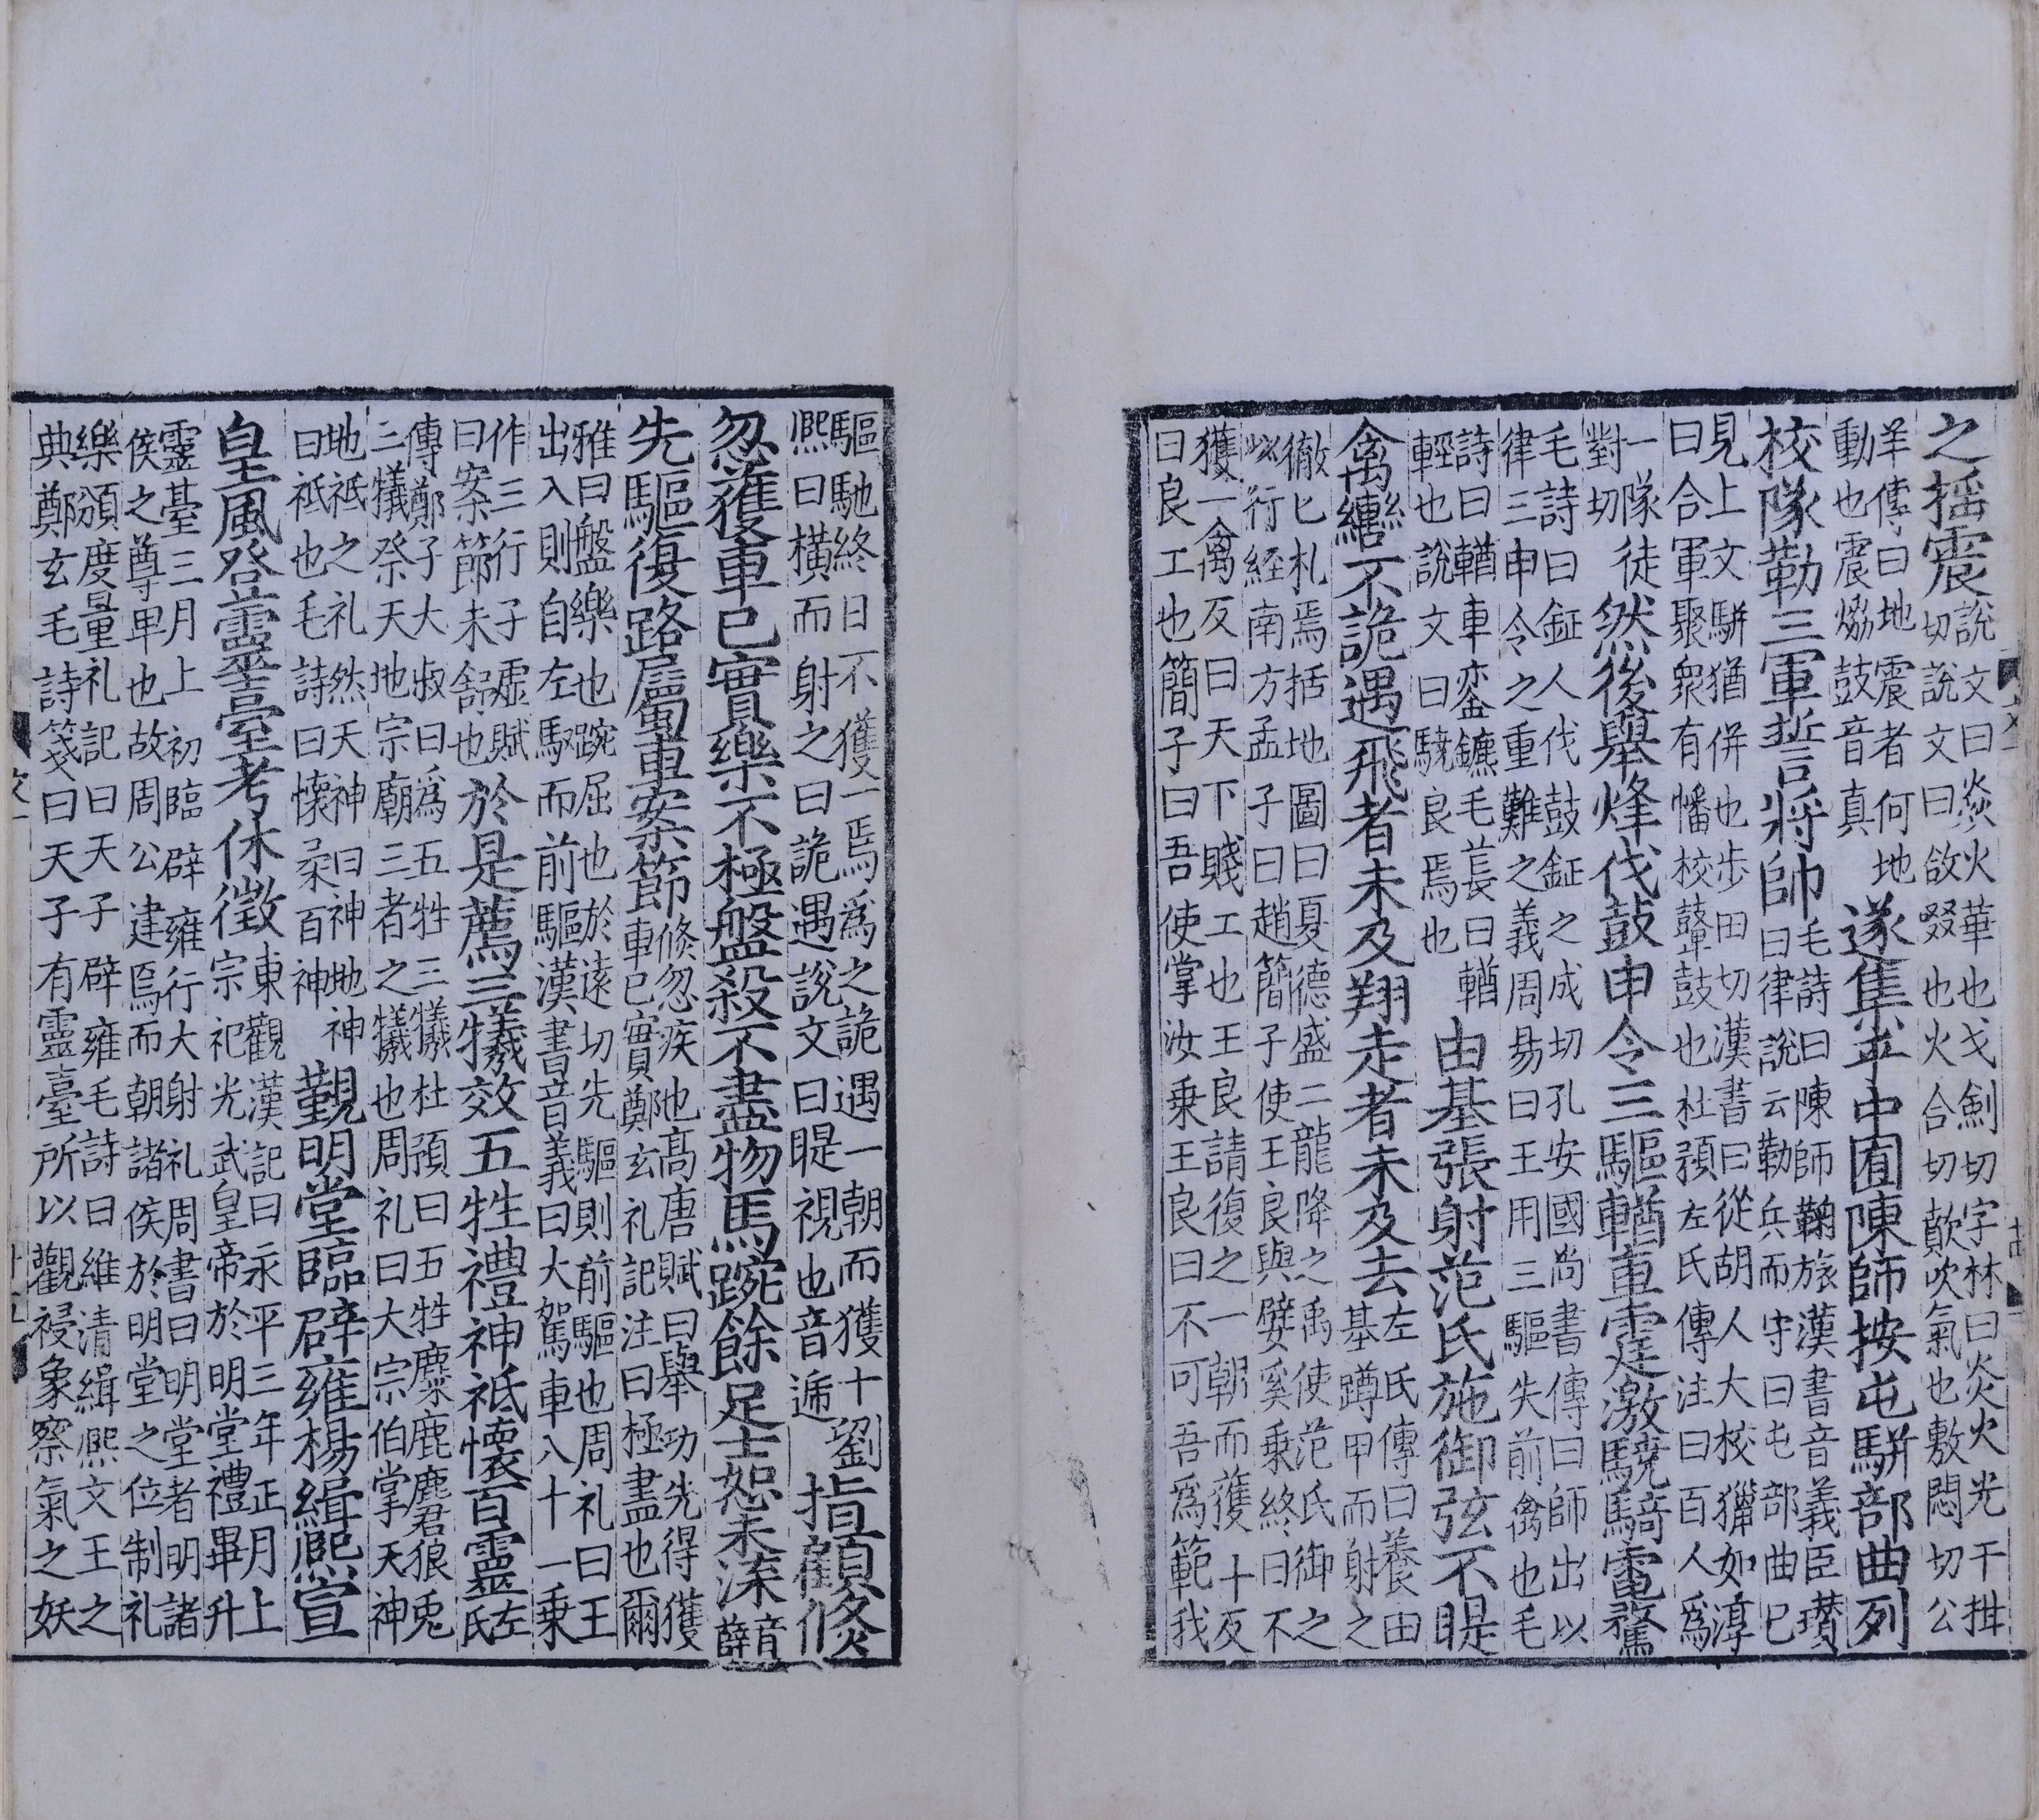 之揺震
說文曰焱火華也弋劒切字林曰炎火光干掞
切說文曰欱啜也火合切歕吹氣也敷悶切公
羊傳曰地震者何地
動也震爚鼓音真
遂集乎中囿陳師按屯駢部曲列
校隊勒三軍誓將帥
毛詩曰陳師鞠旅漢書音義臣瓚
曰律說云勒兵而守曰屯部曲已
見上文駢猶併也步田切漢書曰從胡人大校獵如淳
曰合軍聚衆有幡校聲鼓也杜預左氏傳注曰百人爲
一隊徒
對切
然後舉烽伐鼓申令三驅輶車霆激驍騎電騖
毛詩曰鉦人伐鼓鉦之成切孔安國尚書傳曰師出以
律三申令之重難之義周易曰王用三驅失前禽也毛
詩曰輶車鑾鑣毛萇曰輶
輕也說文曰驍良焉也
由基張射范氏施御弦不睼
禽轡不詭遇飛者未及翔走者未及去
左氏傳曰養由
基蹲甲而射之
徹匕札焉括地圖曰夏德盛二龍降之禹使范氏御之
以行経南方孟子曰趙簡子使王良與嬖奚乗終日不
獲一禽反曰天下賤工也王良請復之一朝而獲十反
曰良工也簡子曰吾使掌汝乗王良曰不可吾爲範我
驅馳終日不獲一焉爲之詭遇一朝而獲十劉
熈曰橫而射之曰詭遇說文曰睼視也音遞
指顧倏
忽獲車已實樂不極盤殺不盡物馬踠餘足士怒未渫
音
薛
先驅復路屬車案節
倏忽疾也髙唐賦曰舉功先得獲
車已實鄭玄礼記注曰極盡也爾
雅曰盤樂也踠屈也於遠切先驅則前驅也周礼曰王
出入則自左馭而前驅漢書音義曰大駕車八十一乗
作三行子虛賦
曰案節未舒也
於是薦三犧效五牲禮神祗懷百靈
左
氏
傳鄭子大叔曰爲五牲三犧杜預曰五牲麋鹿麏狼兎
三犠祭天地宗廟三者之犠也周礼曰大宗伯掌天神
地祗之礼然天神曰神地神
曰祗也毛詩曰懷柔百神
覲明堂臨辟雍楊緝熈宣
皇風登靈臺考休徵
東觀漢記曰永平三年正月上
宗祀光武皇帝於明堂禮畢升
靈臺三月上初臨辟雍行大射礼周書曰明堂者明諸
侯之尊卑也故周公建焉而朝諸侯於明堂之位制礼
樂頒度量礼記曰天子辟雍毛詩曰維清緝熈文王之
典鄭玄毛詩箋曰天子有靈臺所以觀祲象察氣之妖